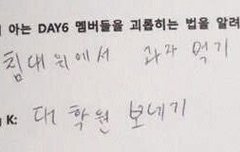 아는 DAY6 멤버들을 괴롭히는 법을 알려
침대 위에서 과자 먹기
K: 대학원 보내기